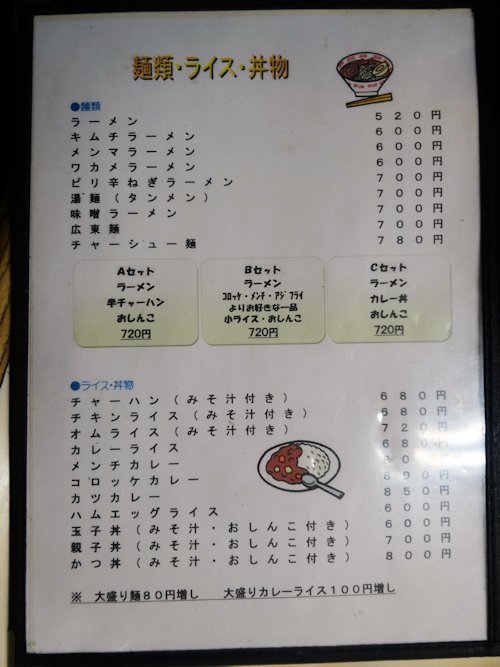 麺類・ライス・丼物
●麺類
ラーメン 520円
キムチラーメン 600円
メンマラーメン 600円
ワカメラーメン 600円
ピリ辛ねぎラーメン 700円
湯麺(タンメン) 700円
味噌ラーメン 700円
広東麺 700円
チャーシュー麺 780円
Aセット
ラーメン
半チャーハン
おしんこ
720円
Bセット
ラーメン
ｺﾛｯｹ・ﾒﾝﾁ・ｱｼﾞﾌﾗｲ
よりお好きな一品
小ライス・おしんこ
720円
Cセット
ラーメン
カレー丼
おしんこ
720円
●ライス・丼物
チャーハン(みそ汁付き) 680円
チキンライス(みそ汁付き) 680円
オムライス(みそ汁付き) 720円
カレーライス 680円
メンチカレー 円
コロッケカレー 800円
カツカレー 850円
ハムエッグライス 600円
玉子丼(みそ汁・おしんこ付き) 600円
親子丼(みそ汁・おしんこ付き) 700円
かつ丼(みそ汁・おしんこ付き) 800円
※ 大盛り麺80円増し 大盛りカレーライス100円増し